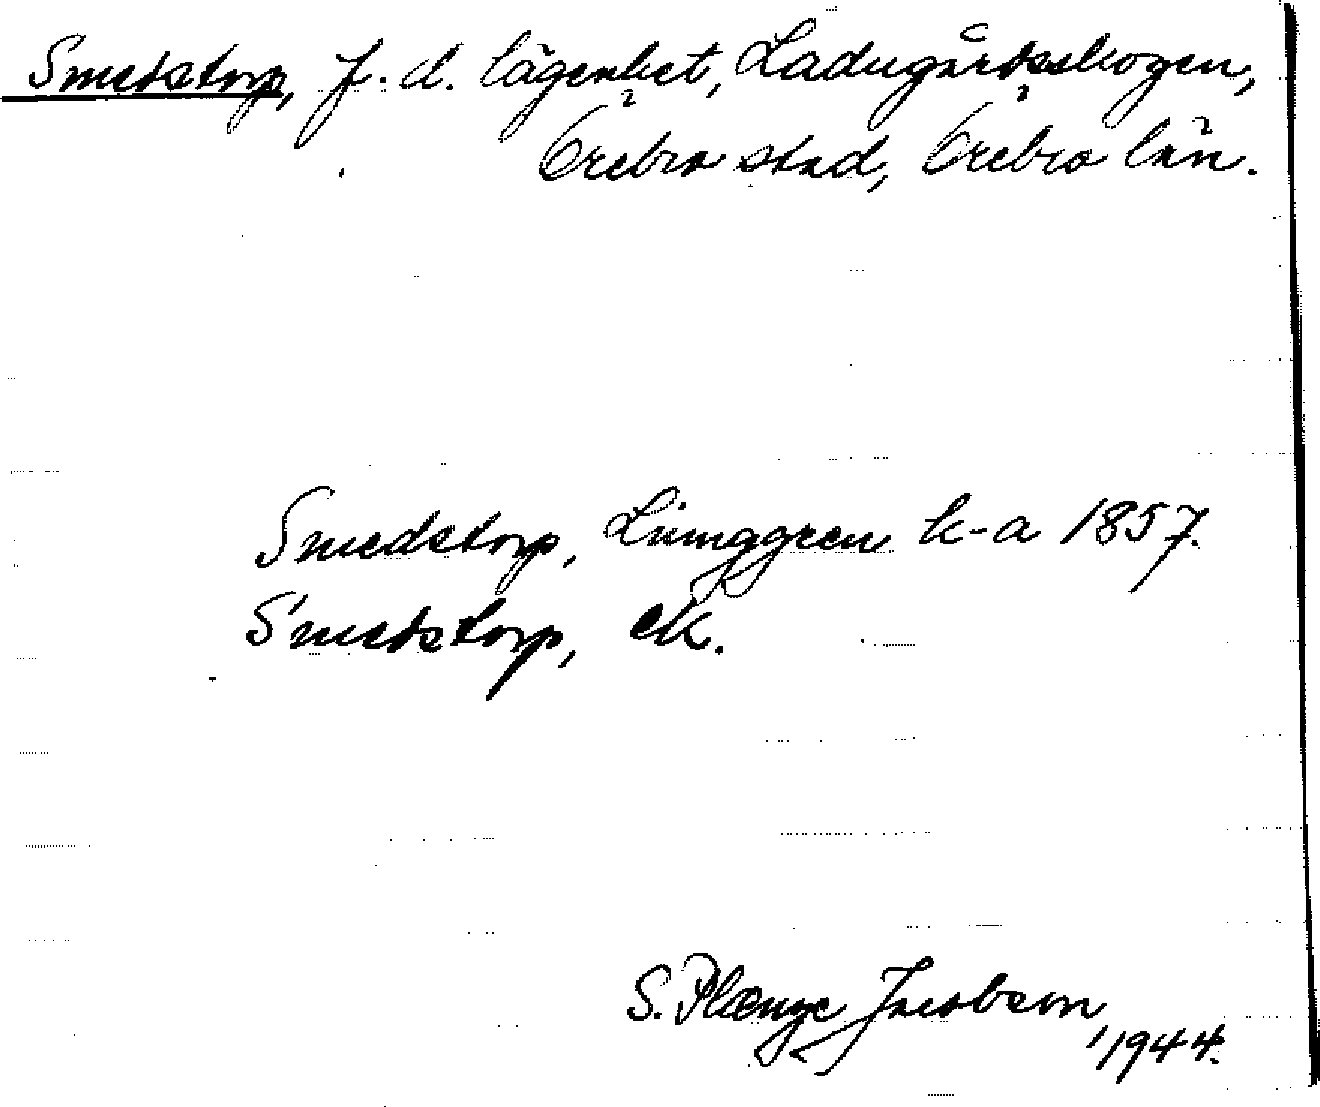 Smedstorp, f. d. lägenhet, Ladugårdsskogen,
Örebro stad, Örebro län.
Smedstorp, Ljunggren k-a 1857.
Smedstorp, eK.
S. Plænge Jacobson, 1944.